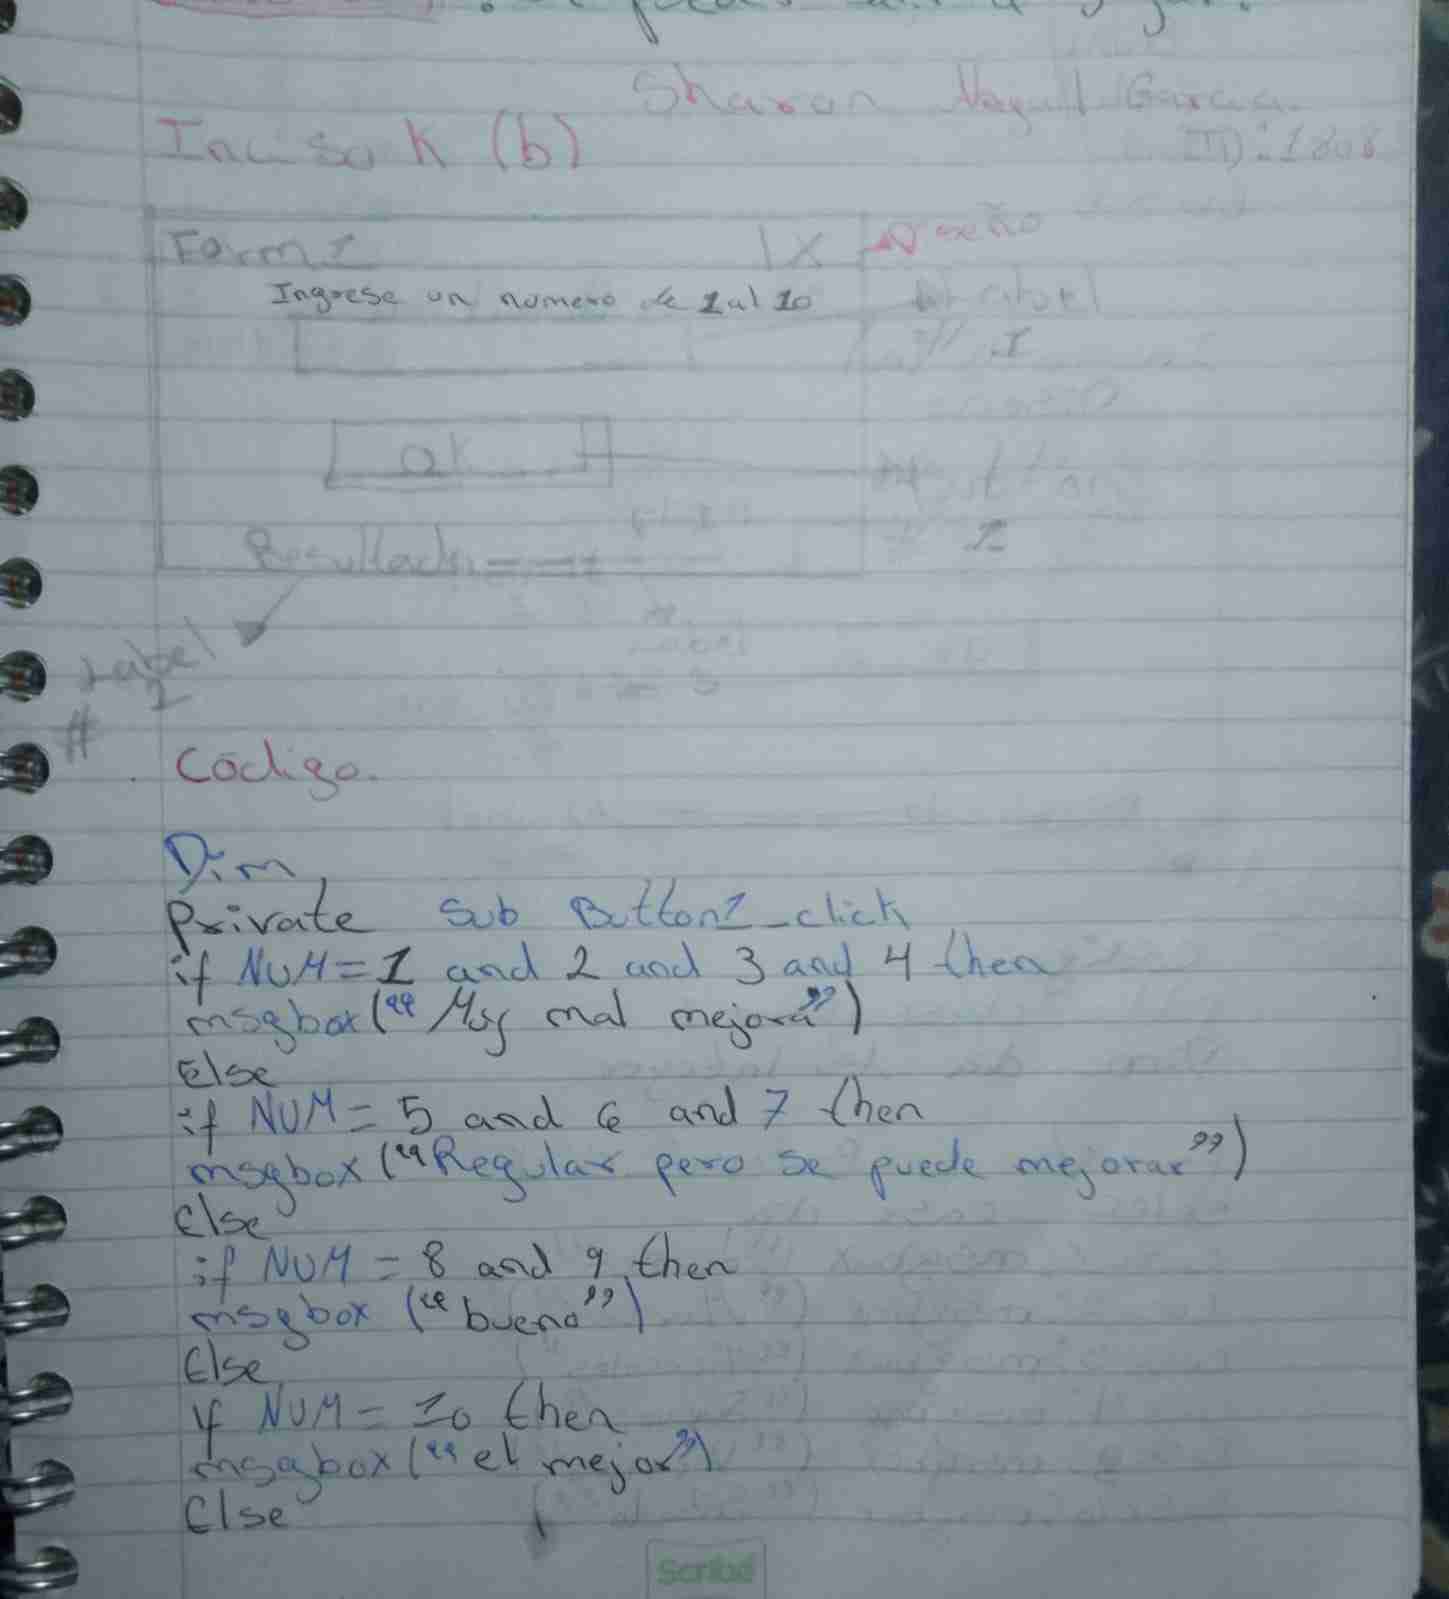 Sharon Garcia.
Inciso K (b)
ID: 1808
Form 1 X
Diseño
Ingrese un numero de 1 al 10
Label
1
OK
1
Resultado
Label
Label
1
3
#
Código.
Dim
Private Sub Button1_click
if NUM = 1 and 2 and 3 and 4 then
msgbox (“Muy mal mejora”)
Else
if NUM = 5 and 6 and 7 then
msgbox (“Regular pero se puede mejorar”)
Else
if NUM = 8 and 9 then
msgbox (“bueno”)
Else
if NUM = 10 then
msgbox (“el mejor”)
Else
Scribe